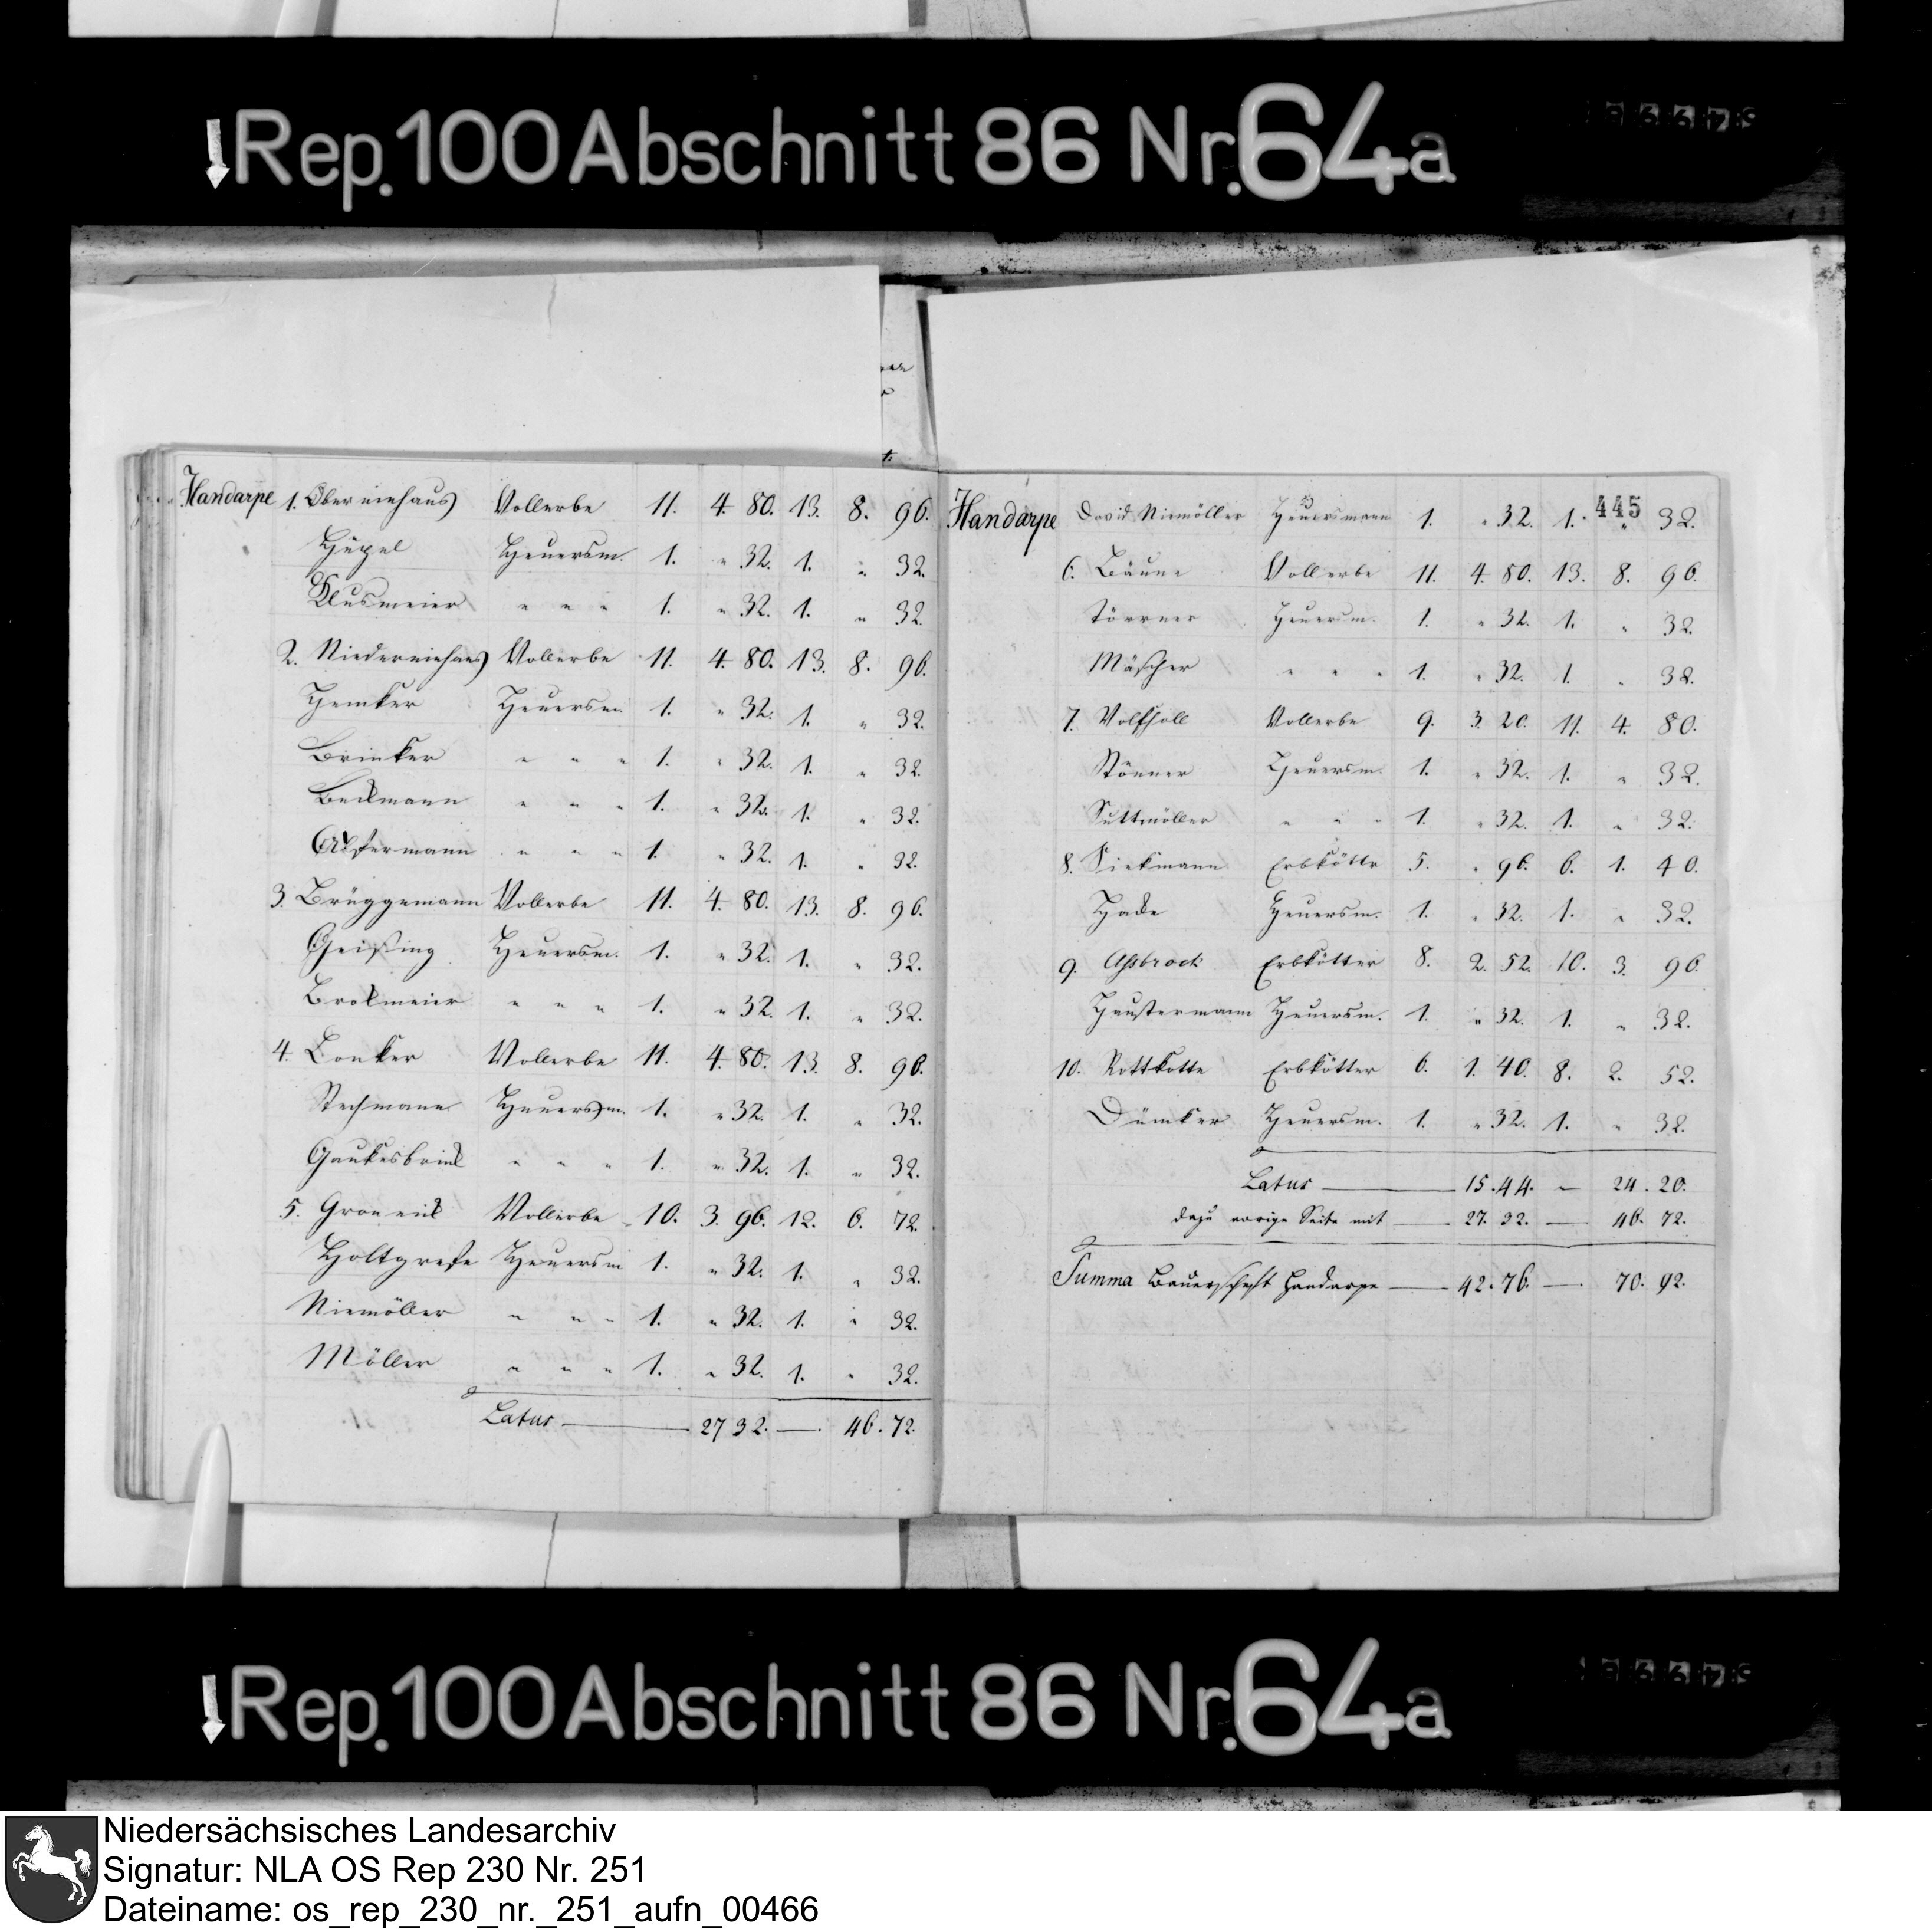 Rep. 100 Abschnitt 86 Nr. 64a
Handarpe 1. Oberniehaus Vollerbe 11. 4. 80. 13. 8. 96.
Hügel Heuersm. 1. " 32. 1. " 32.
Klusmeier " " " 1. " 32. 1. " 32.
2. Niederniehaus Vollerbe 11. 4. 80. 13. 8. 96.
Hemker Heuersm 1. " 32. 1. " 32.
Brinker " " " 1. " 32. 1. " 32.
Beckmann " " " 1. " 32. 1. " 32.
" " " 1. " 32. 1. " 32.
3. Brüggemann Vollerbe 11. 4. 80. 13. 8. 96.
Geißing Heuersm. 1. " 32. 1. " 32.
Brokmeier " " " 1. " 32. 1. " 32.
4. Lonker Vollerbe 11. 4. 80. 13. 8. 96.
Heuersm. 1. " 32. 1. " 32.
Gaukesbrink " " " 1. " 32. 1. " 32.
5. Groneick Vollerbe 10. 3. 96. 12. 6. 72.
Holtgrefe Heuersm 1. " 32. 1. " 32.
Niemöller " " " 1. " 32. 1. " 32.
Möller " " " 1. " 32. 1. " 32.
Latus 27 32. 46. 72.
445
Handarpe David Niemöller Heuersmann 1. " 32. 1. " 32.
6. Bäune Vollerbe 11. 4. 80. 13. 8. 96.
Törrner Heuersm. 1. " 32. 1. " 32.
Mäscher " " " 1. " 32. 1. " 32.
7. Vollerbe 9. 3. 20. 11. 4. 80.
Stönner Heuersm. 1. " 32. 1. " 32.
Suttmöller " " " 1. " 32. 1. " 32.
8. Siekmann Erbkötte 5. " 96. 6. 1. 40.
Hacke Heuersm. 1. " 32. 1. " 32.
9. Ahsbrock Erbkötter 8. 2. 52. 10. 3. 96.
Heustermann Heuersm. 1. " 32. 1. " 32.
10. Rottkotte Erbkötter 6. 1. 40. 8. 2. 52.
Dümker Heuersm. 1. " 32. 1. " 32.
Latus 15. 44. 24. 20.
dazu vorige Seite mit 27. 32. 46. 72.
Summa Bauerschaft Handarpe 42. 76. 70. 92.
Rep. 100 Abschnitt 86 Nr. 64a
Niedersächsisches Landesarchiv
Signatur: NLA OS Rep 230 Nr. 251
Dateiname: os_rep_230_nr._251_aufn_00466